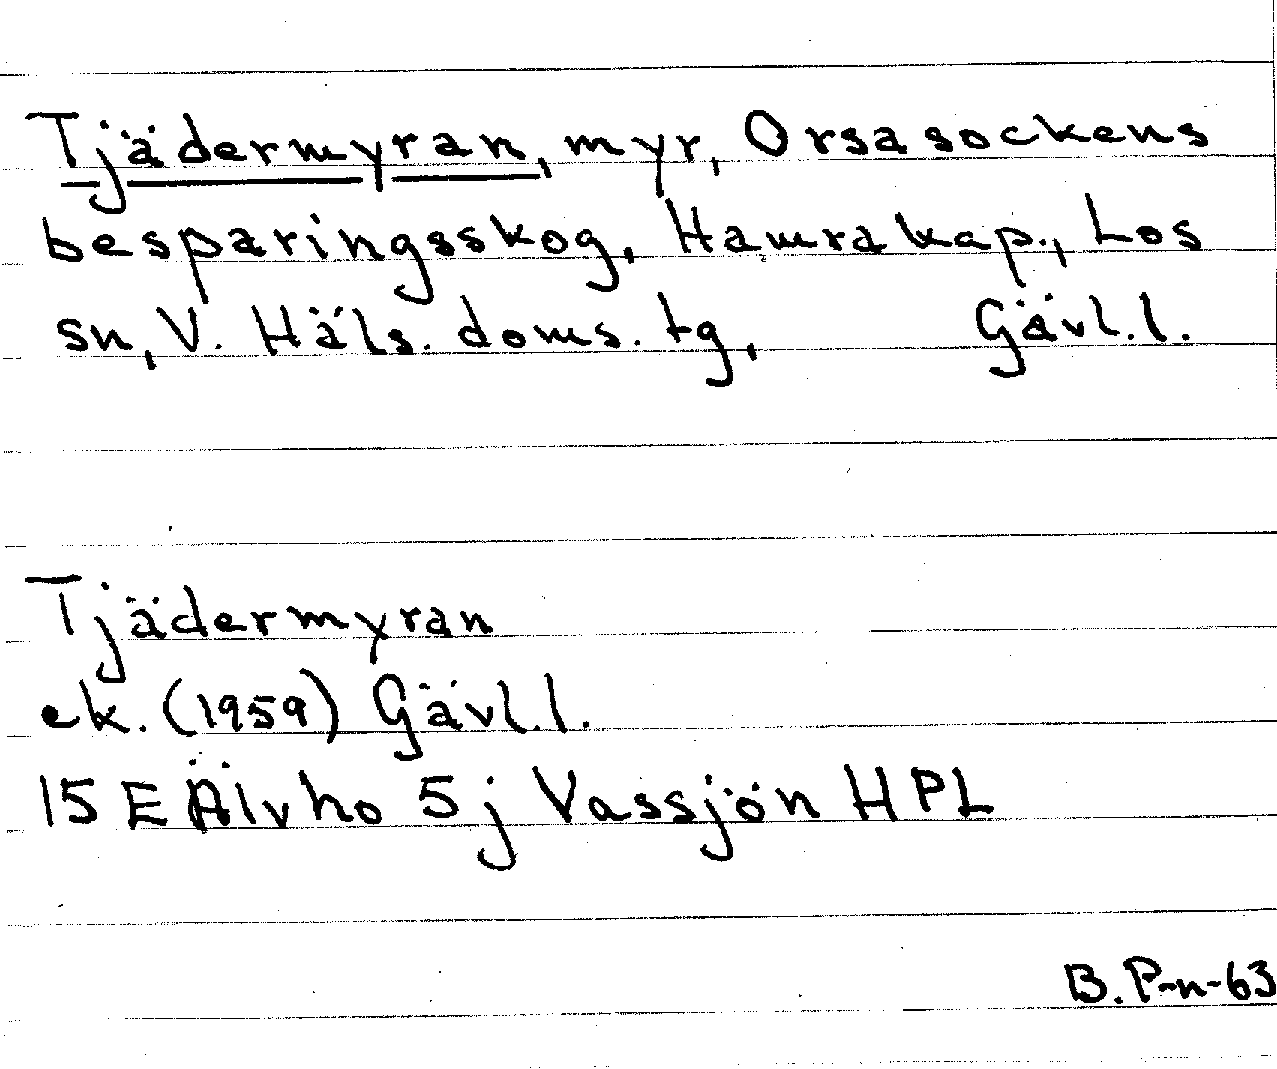 Tjädermyran, myr, Orsa sockens
besparingsskog, Hamra kap., Los
sn, V. Häls. doms. tg, Gävl.l.
Tjädermyran
ek. (1959) Gävl.l.
15 E Älvho 5j Vassjön HPL
B. P-n-63